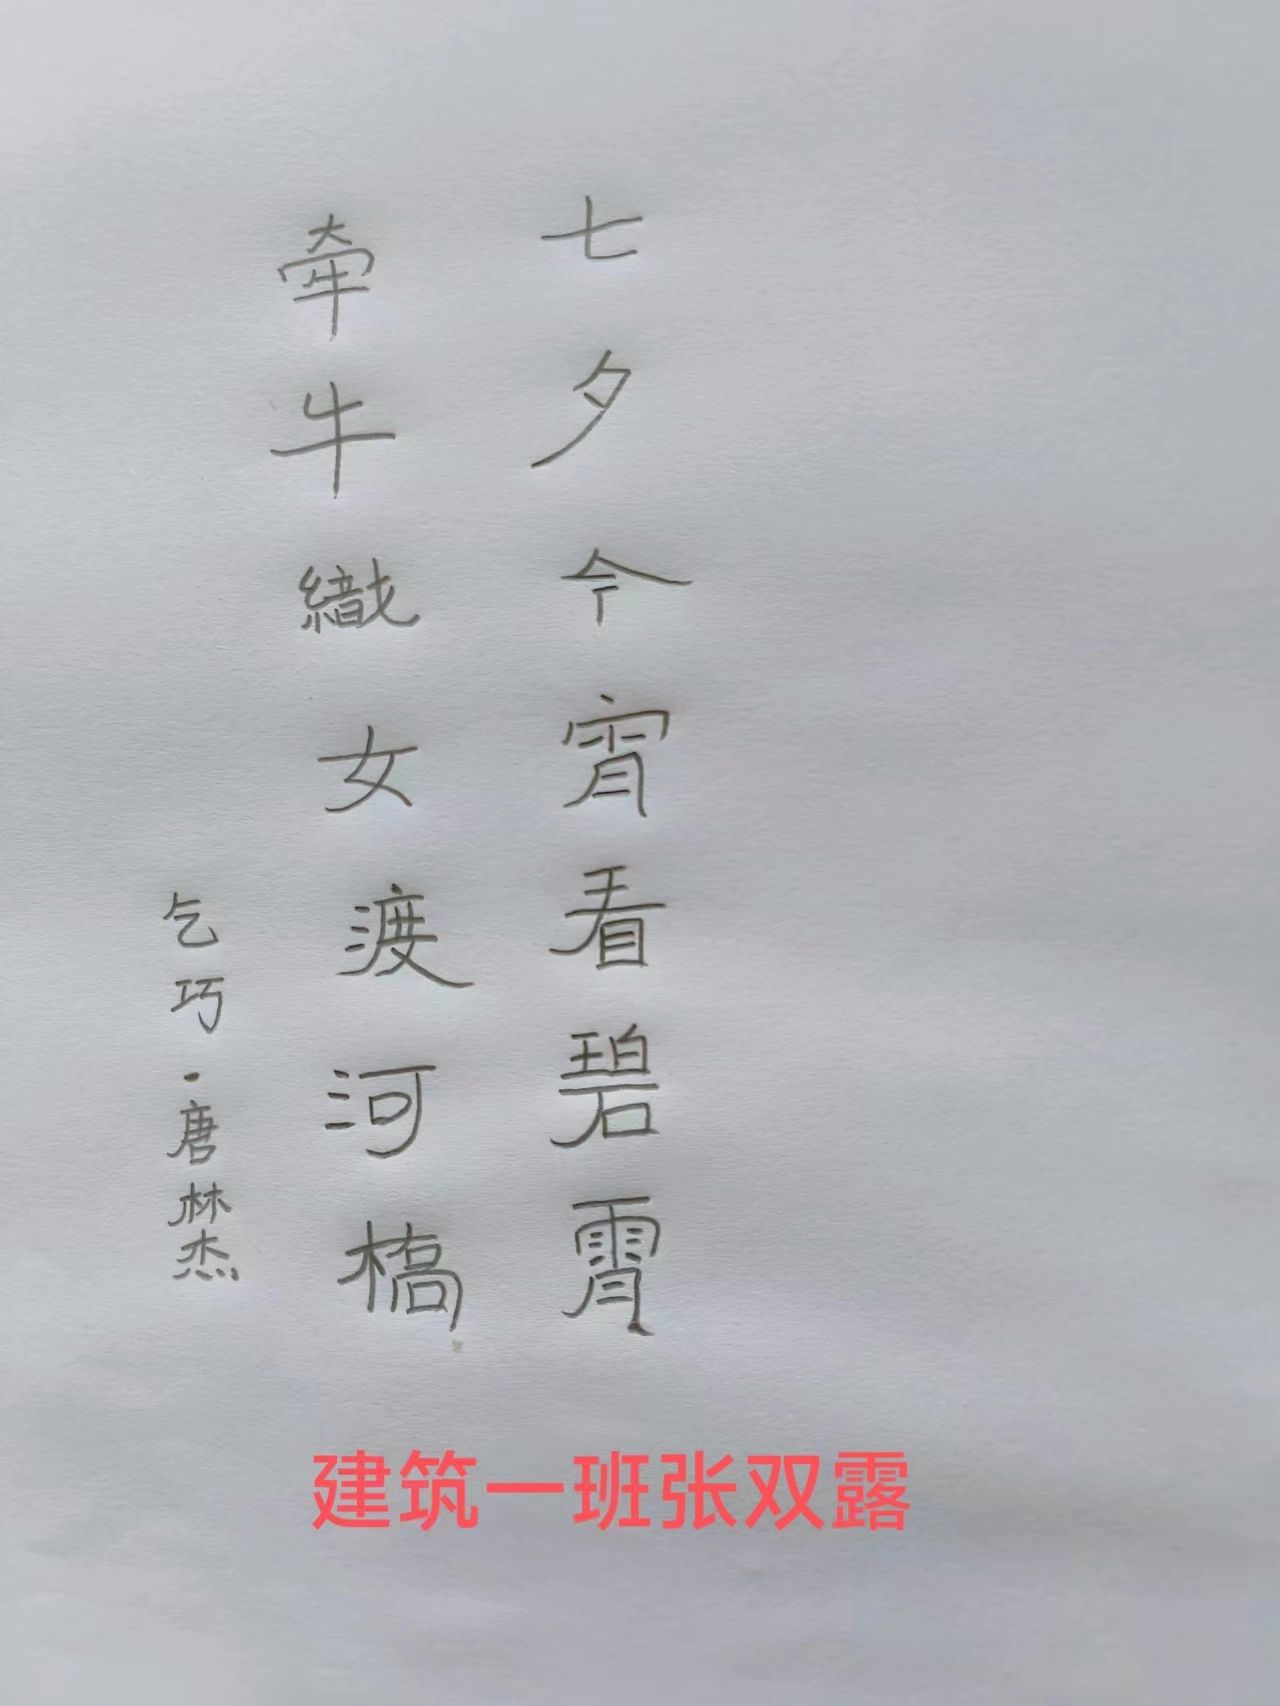 七夕今宵看碧霄
牽牛織女渡河橋
乞巧·唐林杰
建筑一班张双露